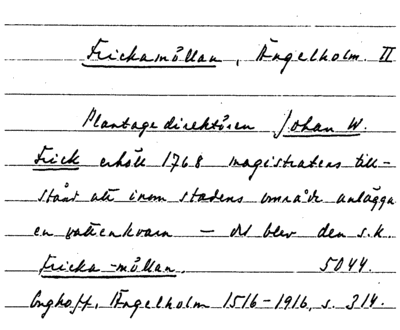 Frickamöllan, Ängelholm. II
Plantagedirektören Johan W.
Frick erhöll 1768 magistratens till-
stånd att inom stadens område anlägga
en vattenkvarn – det blev den s.k.
Fricka-möllan. 5044.
Enghoff, Ängelholm 1516-1916, s. 314.